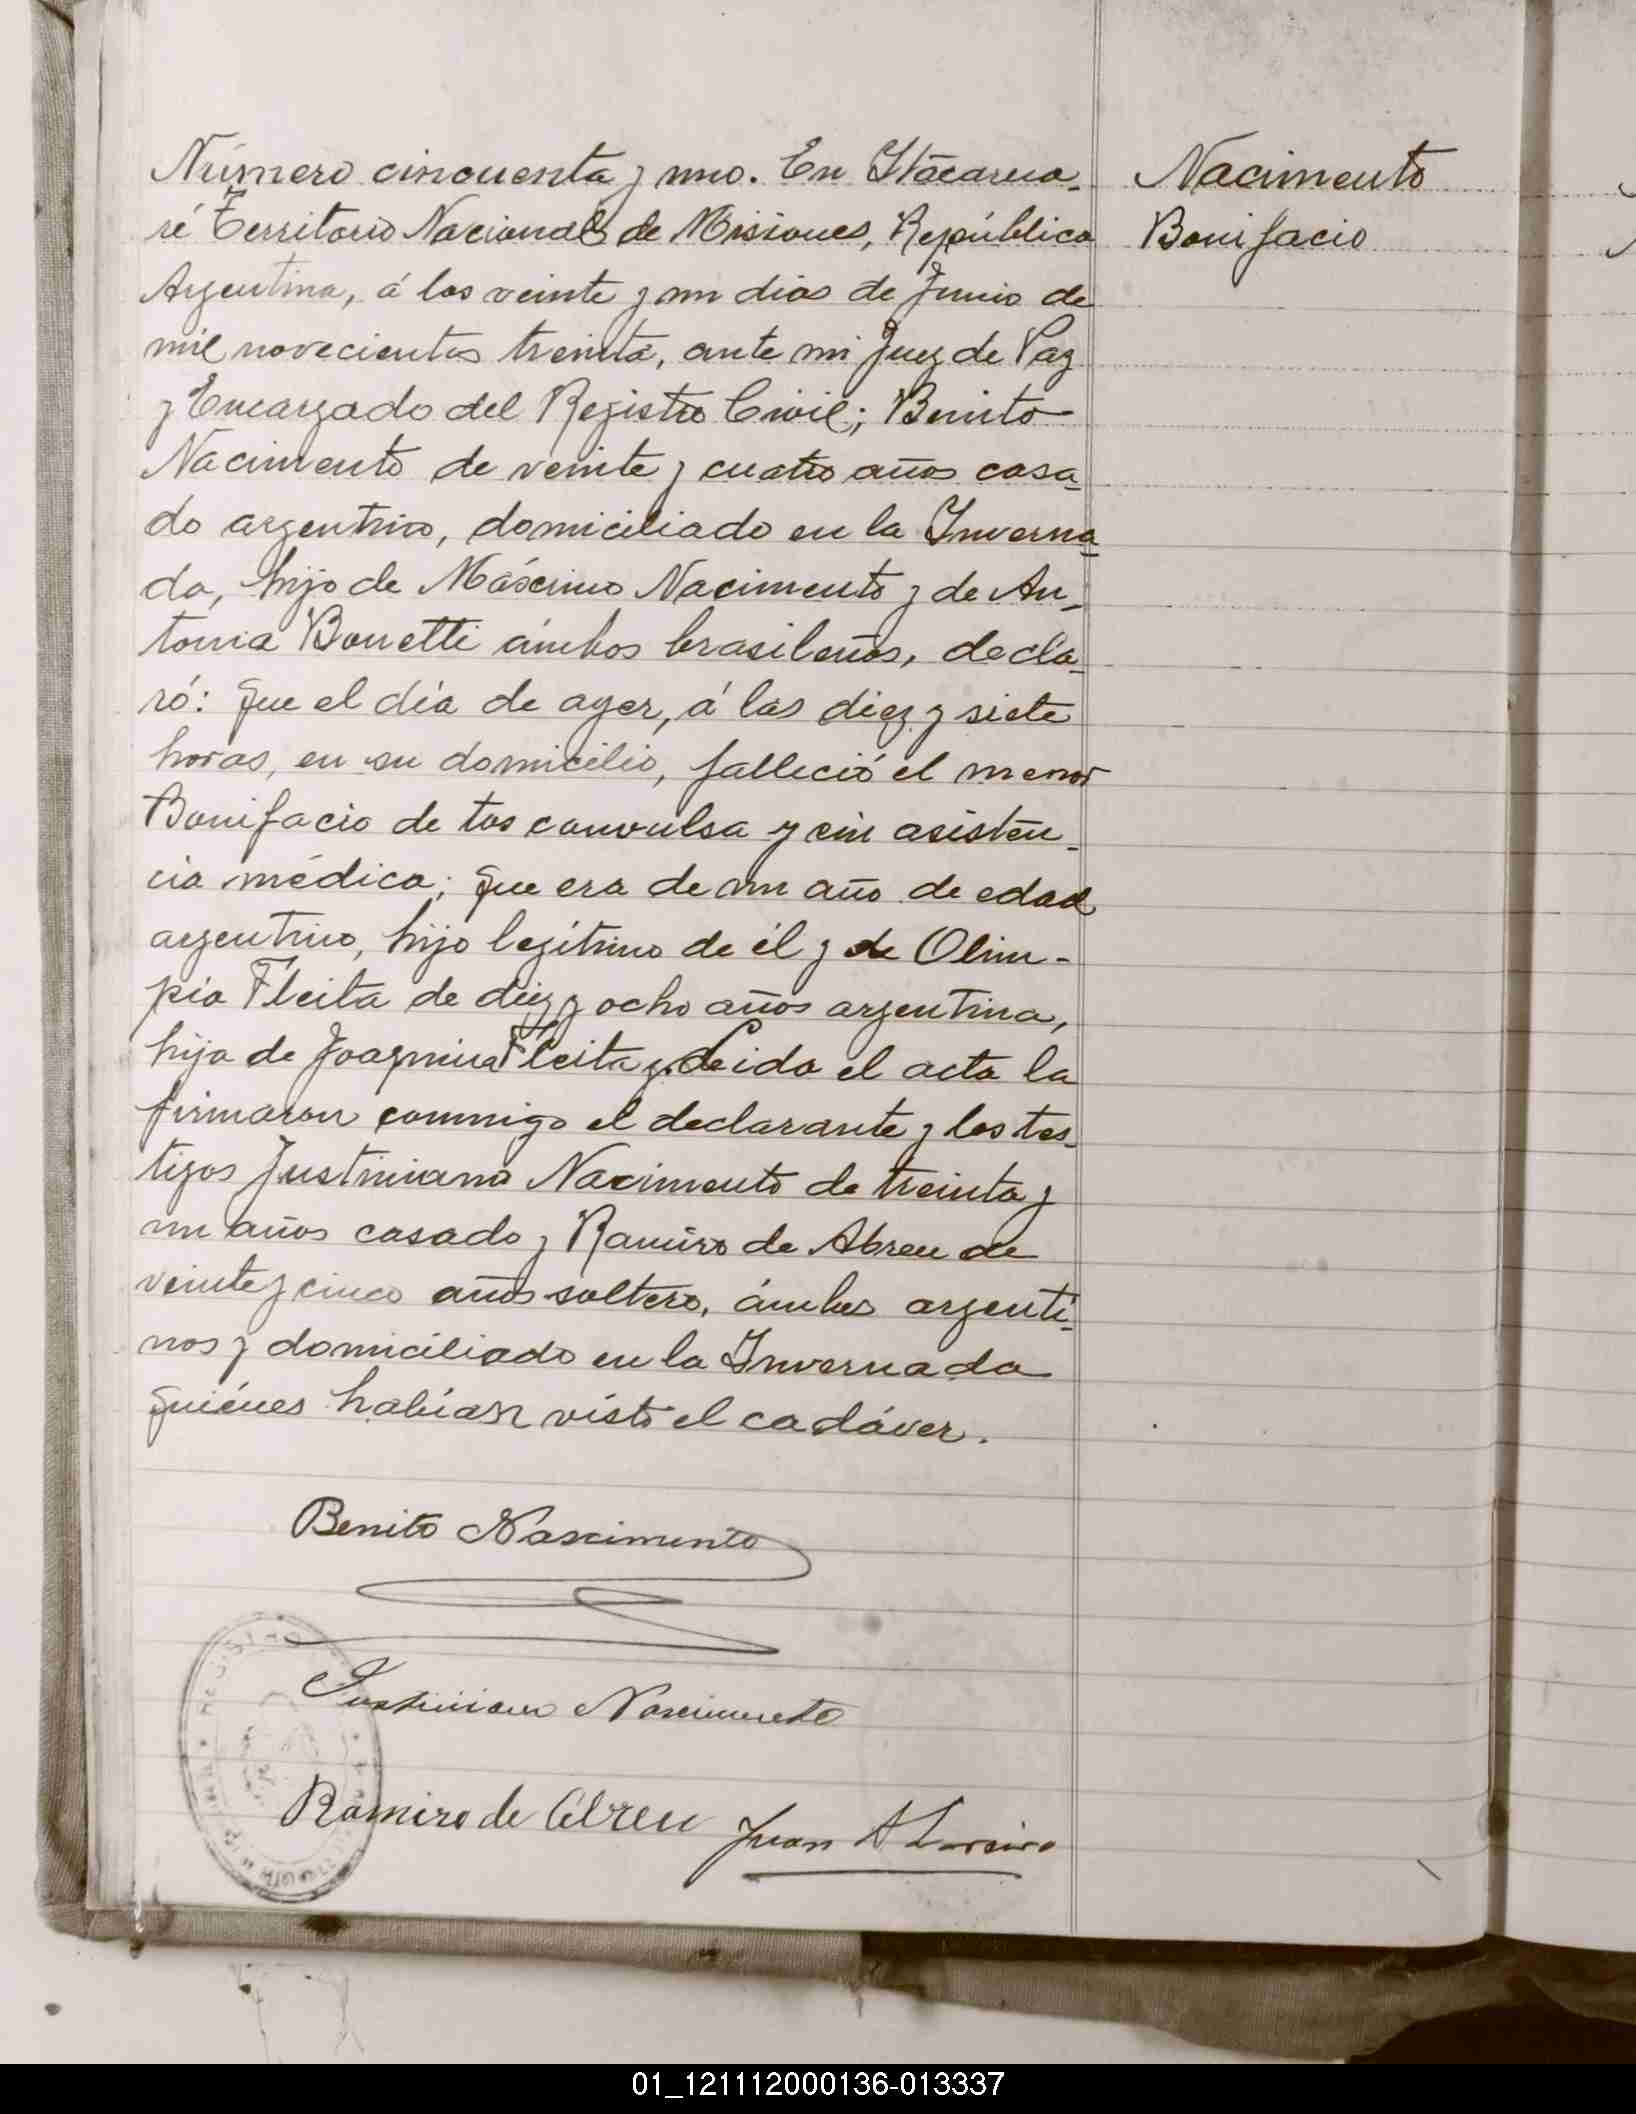 Número cincuenta y uno. En Itacarua-
ré Territorio Nacional de Misiones, República
Argentina, á los veinte y un dias de Junio de
mil novecientos treinta, ante mi Juez de Paz
y Encargado del Registro Civil; Benito
Nacimento de veinte y cuatro años casa-
do argentino, domiciliado en la Inverna-
da, hijo de Máximo Nacimento y de An-
tonia Bonetti ámbos brasileños, decla-
ró: Que el día de ayer, á las diez y siete
horas, en su domicilio, falleció el menor
Bonifacio de tos convulsa y sin asisten-
cia médica; que era de un año de edad
argentino, hijo legítimo de él y de Olim-
pia Fleita de diez y ocho años argentina,
hija de Joaquina Fleita y. Leida el acta la
firmaron conmigo el declarante y los tes-
tigos Justiniano Nacimento de treinta y
un años casado y Ramiro de Abreu de
veinte y cinco años soltero, ámbos argenti-
nos y domiciliado en la Invernada
quiénes habían visto el cadáver.
Nacimento
Bonifacio
Benito Nascimento
Justiniano Nascimento
Ramiro de Abreu Juan A Loreiro
01_121112000136-013337